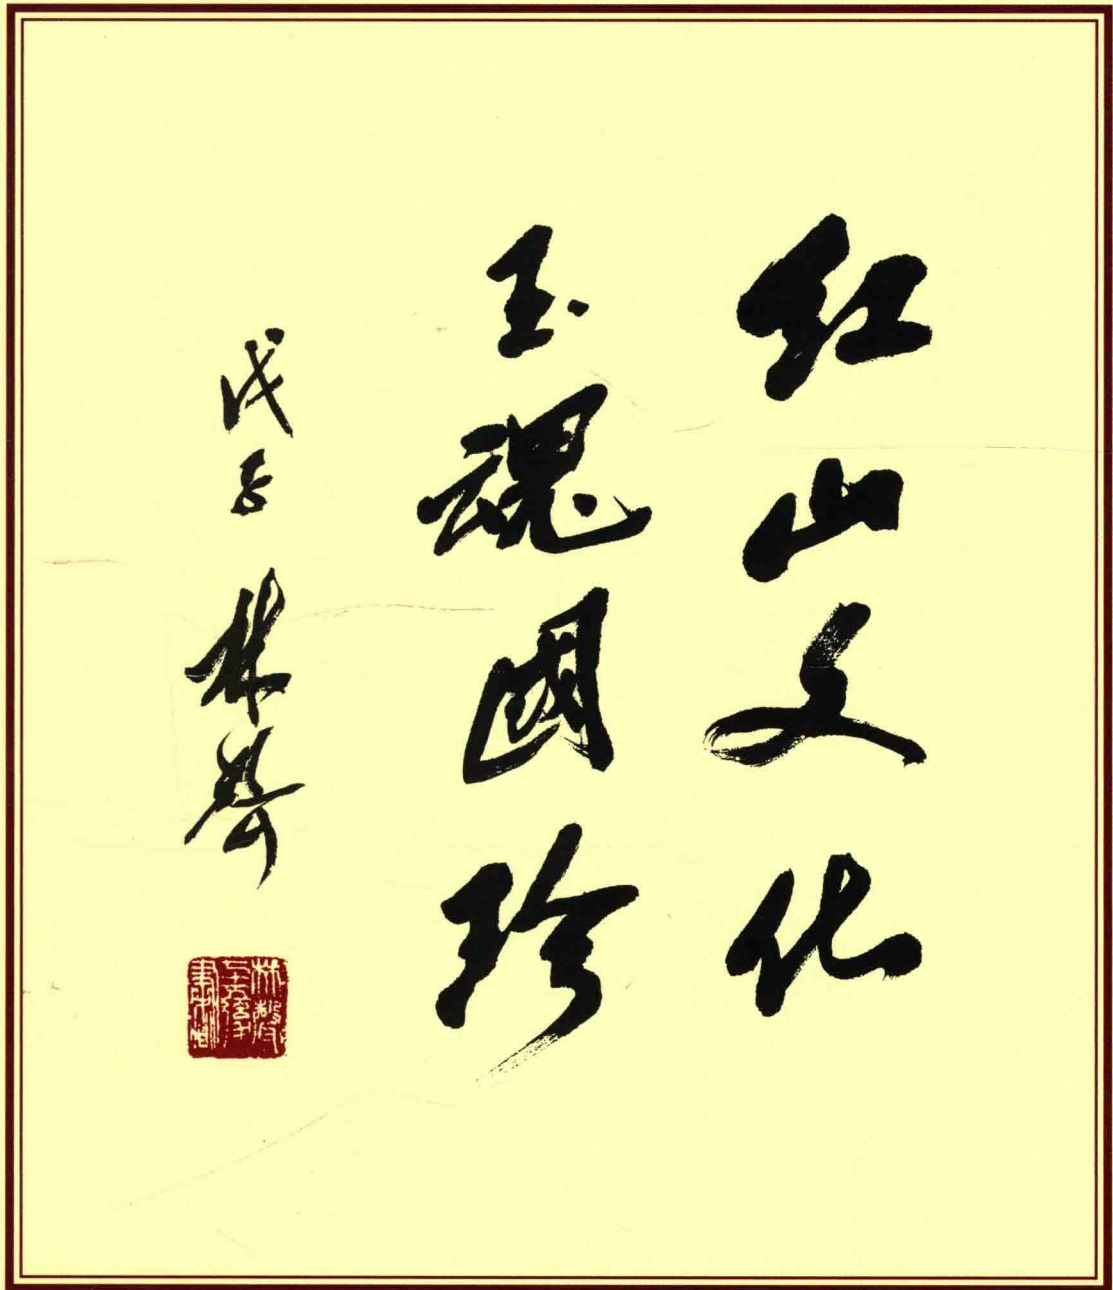 红山文化
玉魂國珍
戊子 林声